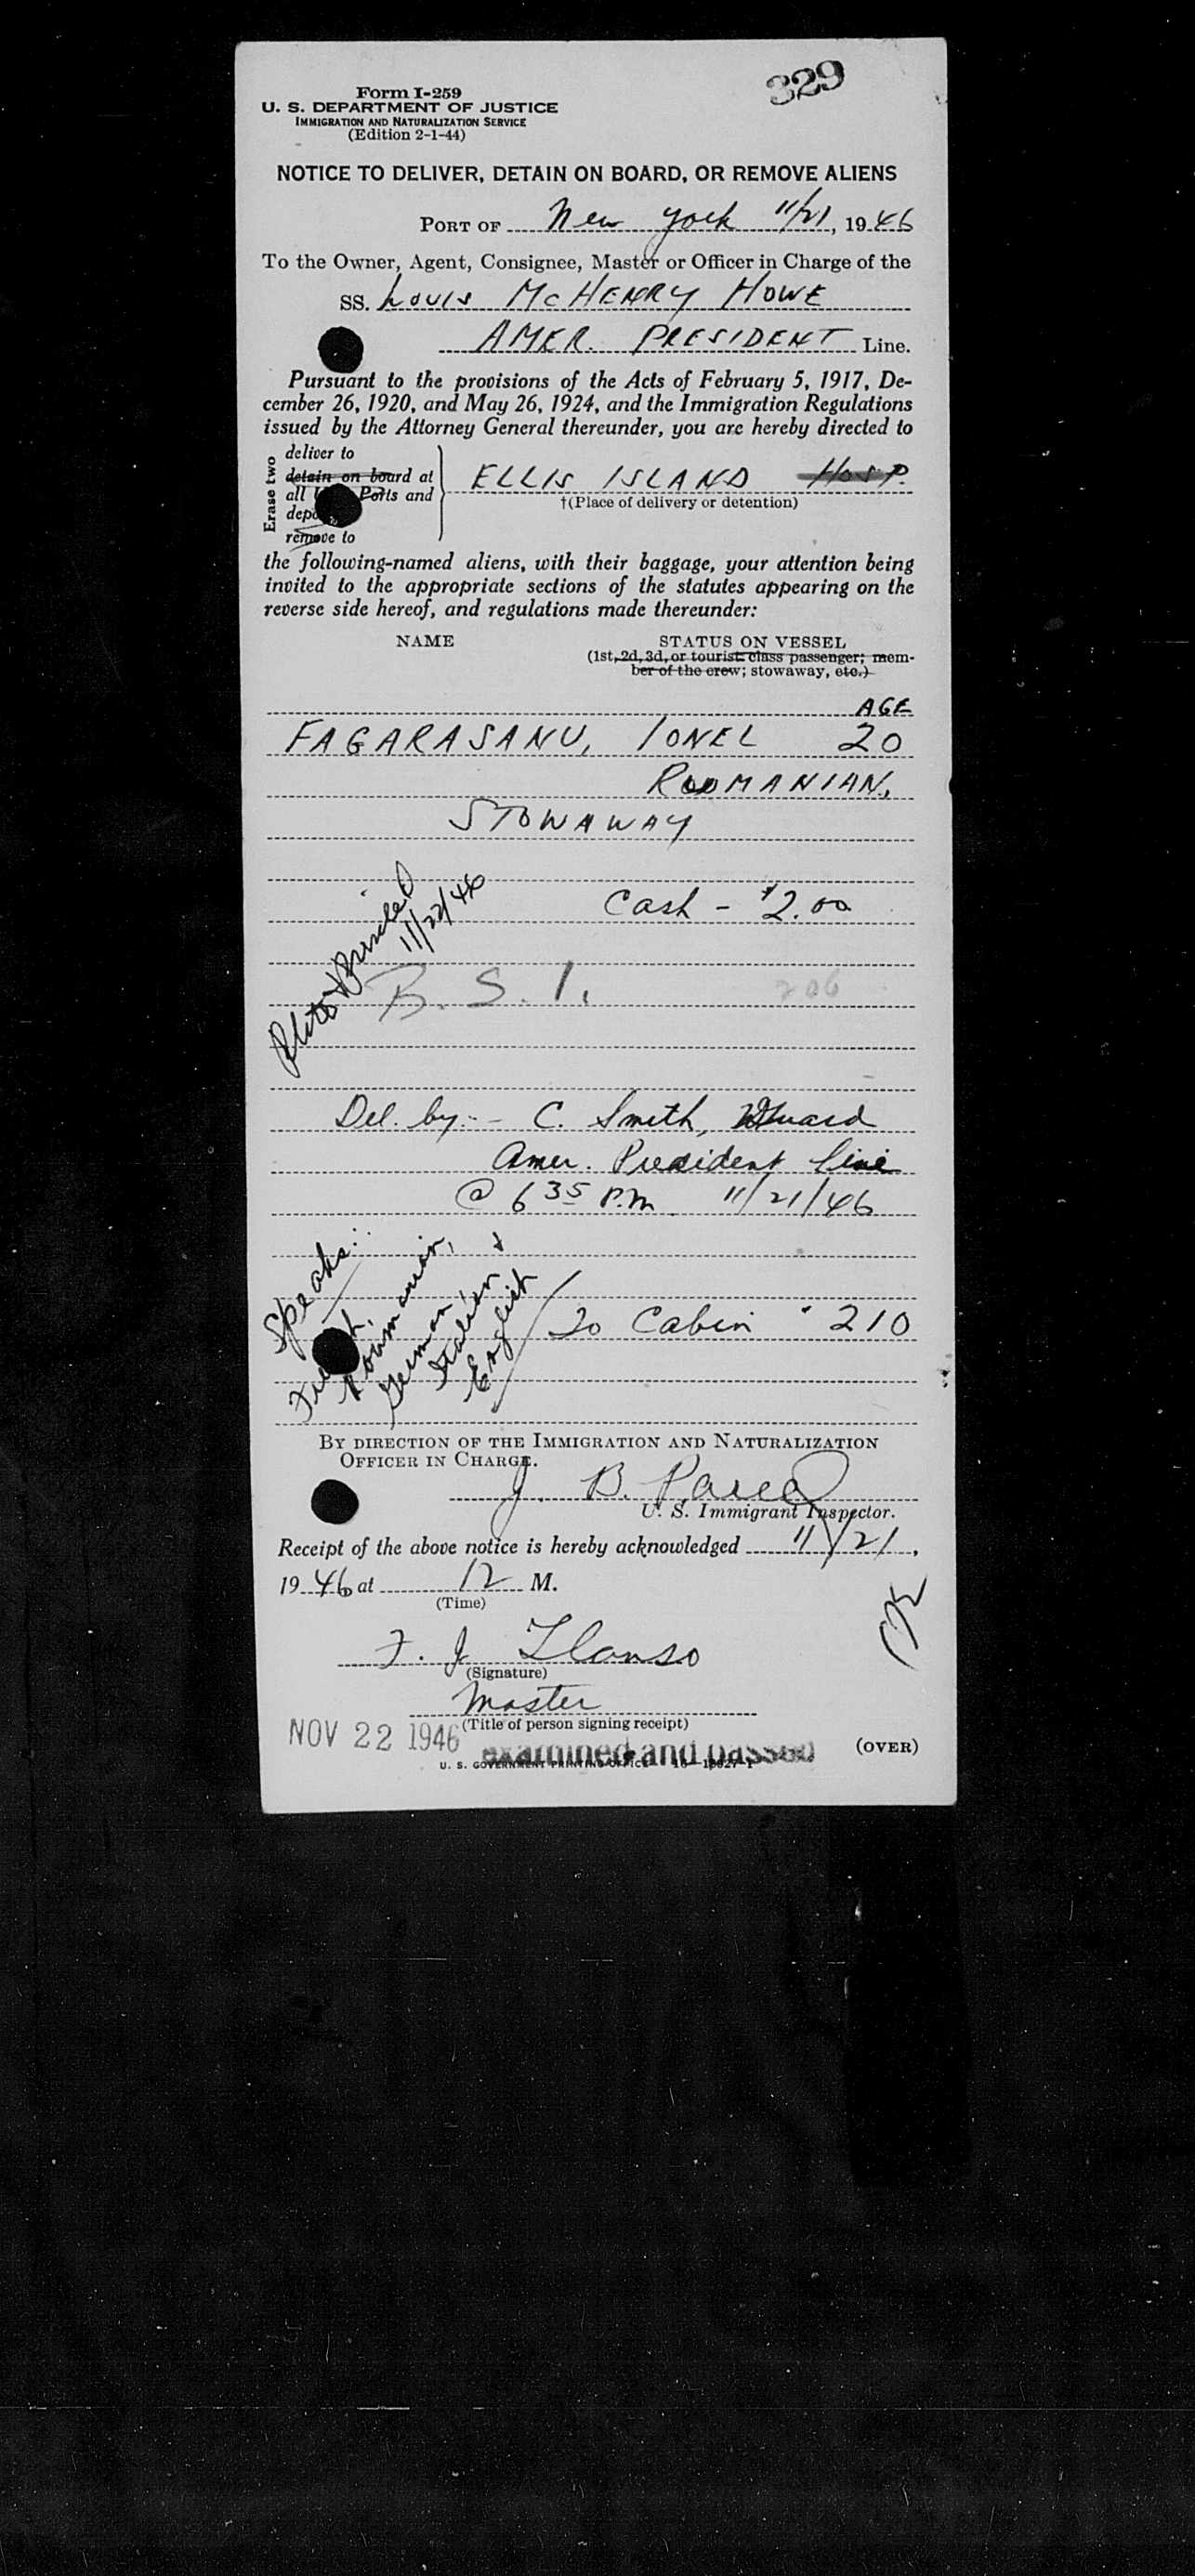 329
Form I-259
U. S. DEPARTMENT OF JUSTICE
IMMIGRATION AND NATURALIZATION SERVICE
(Edition 2-1-44)
NOTICE TO DELIVER, DETAIN ON BOARD, OR REMOVE ALIENS
PORT OF New York 11/21, 1946
To the Owner, Agent, Consignee, Master or Officer in Charge of the
SS. Louis McHENRY HOWE
AMER. PRESIDENT Line.
Pursuant to the provisions of the Acts of February 5, 1917, De-
cember 26, 1920, and May 26, 1924, and the Immigration Regulations
issued by the Attorney General thereunder, you are hereby directed to
Erase two
deliver to
detain on board at
all Ports and
remove to
ELLIS ISLAND HOSP.
†(Place of delivery or detention)
the following-named aliens, with their baggage, your attention being
invited to the appropriate sections of the statutes appearing on the
reverse side hereof, and regulations made thereunder:
NAME
STATUS ON VESSEL
(1st, 2d, 3d, or tourist class passenger; mem-
ber of the crew; stowaway, etc.)
AGE
FAGARASANU, IONEL 20
ROUMANIAN,
STOWAWAY
Cash - $2.00
Photo &
11/22/46
B. S. I.
206
Del. by:- C. Smith,
Amer. President Line
@ 6 35 P.M. 11/21/46
Speaks:
Roumanian,
German,
Italian &
English
To Cabin 210
BY DIRECTION OF THE IMMIGRATION AND NATURALIZATION
OFFICER IN CHARGE.
J. B.
U. S. Immigrant Inspector.
Receipt of the above notice is hereby acknowledged 11/21,
1946 at 12 M.
(Time)
F. J.
(Signature)
Master
(Title of person signing receipt)
NOV 22 1946
examined and passed
(OVER)
U. S. GOVERNMENT PRINTING OFFICE